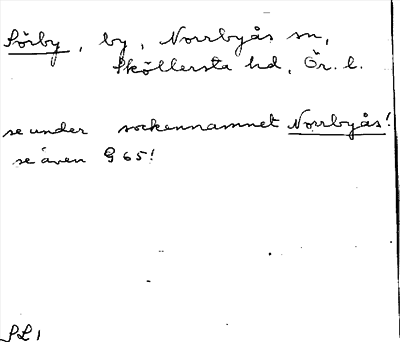 Sörby, by, Norrbyås sn,
Sköllersta hd, Ör. l.
se under sockennamnet Norrbyås!
se även G 65!
SL,